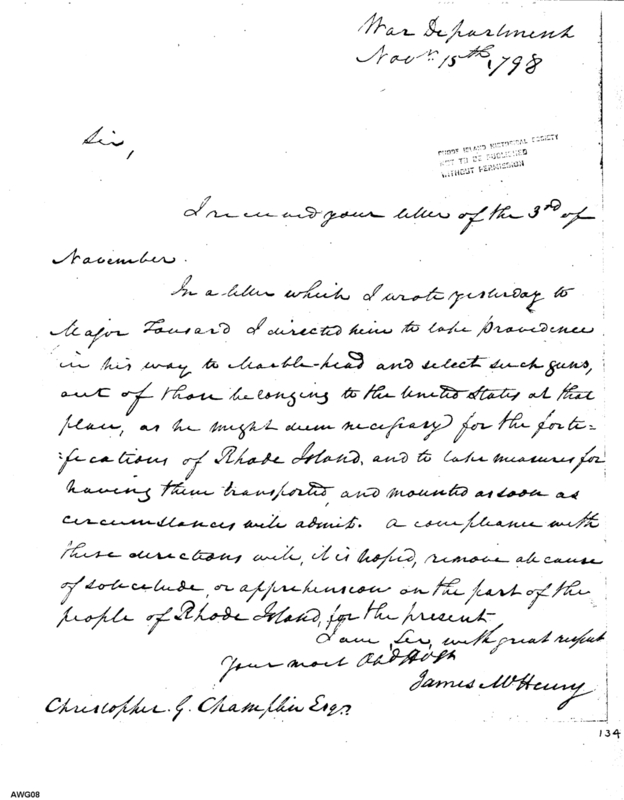 War Department
Novr. 15th, 1798
Sir,
RHODE ISLAND HISTORICAL SOCIETY
NOT TO BE PUBLISHED
WITHOUT PERMISSION
I received your letter of the 3rd of
November.
In a letter which I wrote yesterday to
Major Tousard I directed him to take Providence
in his way to Marble-head and select such guns,
out of those belonging to the United States at that
place, as he might deem necessary for the forti=
=fications of Rhode Island, and to take measures for
having them transported, and mounted as soon as
circumstances will admit. A compliance with
these directions will, it is hoped, remove all cause
of solicitude, or apprehension on the part of the
people of Rhode Island, for the present
I am, Sir, with great respect
Your most Obd Hble
James McHenry
Christopher. G. Champlin Esqr.
134
AWG08